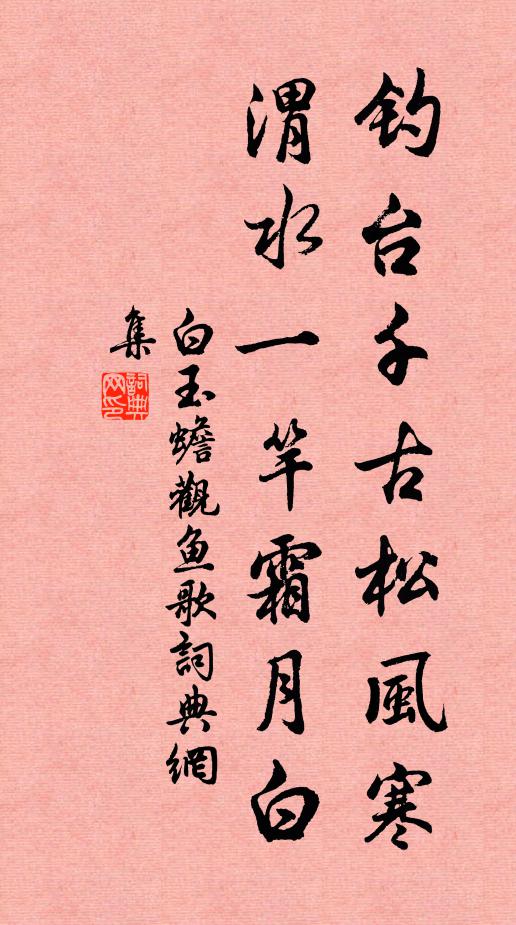 钓台千古松風寒
渭水一竿霜月白
白玉蟾觀鱼歌詞典網
集
詞典网印